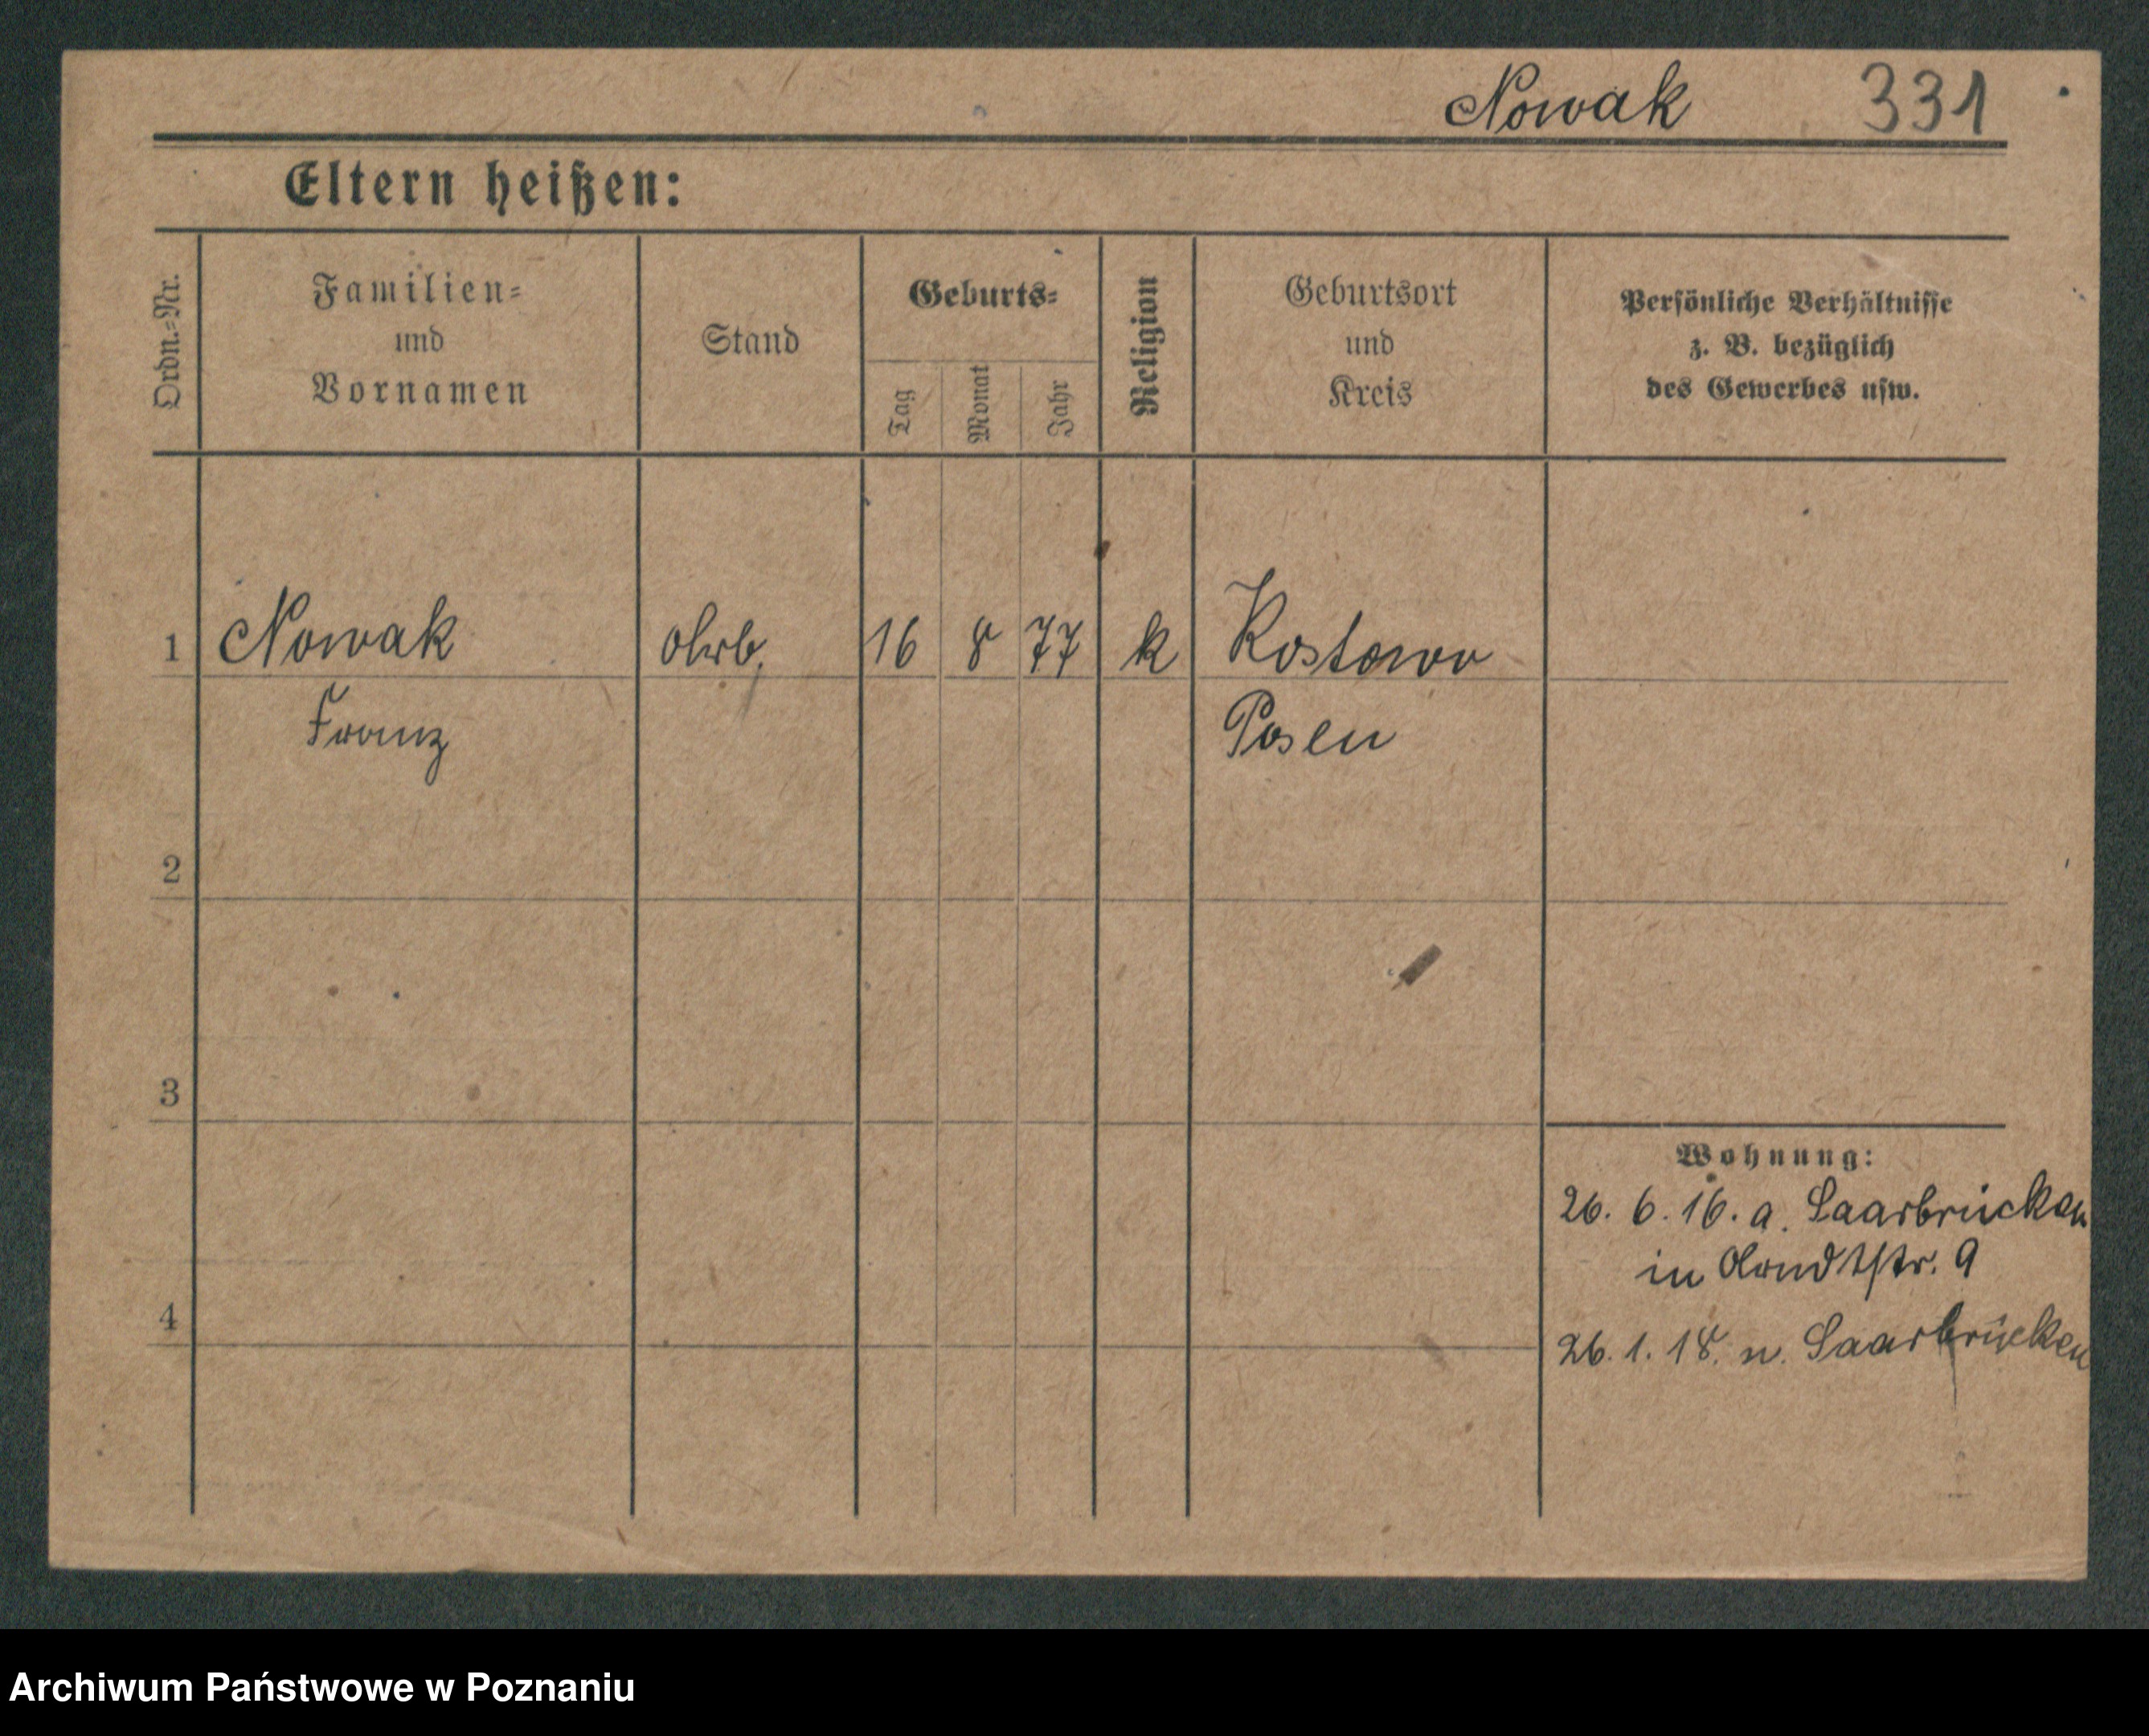 Nowak 331
Eltern heißen:
Ordn.-Nr.
Familien-
und
Vornamen
Stand
Geburts-
Tag
Monat
Jahr
Religion
Geburtsort
und
Kreis
Persönliche Verhältnisse
z. B. bezüglich
des Gewerbes usw.
1 Nowak Arb. 16 8 77 k Kostowo
Franz Posen
2
3
4
Wohnung:
26. 6. 16. a. Saarbrücken
in Arndtstr. 9
26. 1. 18. n. Saarbrücken
Archiwum Państwowe w Poznaniu